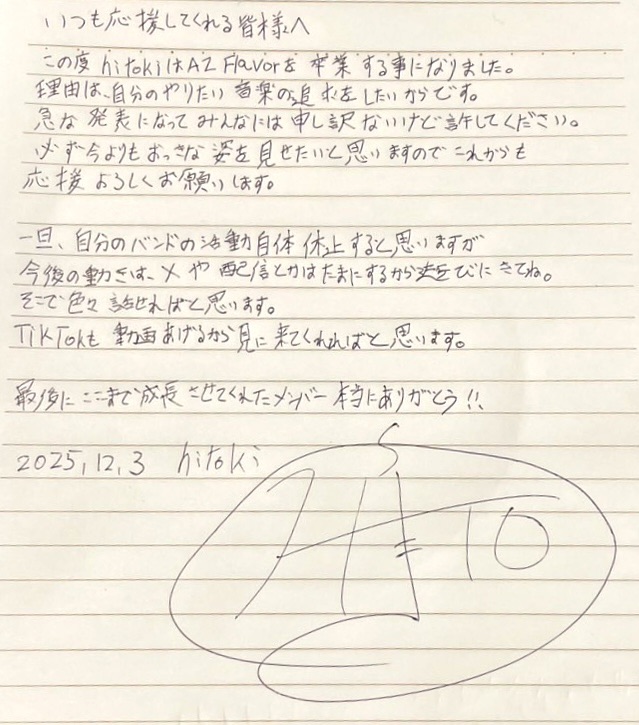 いつも応援してくれる皆様へ
この度hitokiはAZ Flavorを卒業する事になりました。
理由は、自分のやりたい音楽の追求をしたいからです。
急な発表になってみんなには申し訳ないけど許してください。
必ず今よりもおっきな姿を見せたいと思いますのでこれからも
応援よろしくお願いします。
一旦、自分のバンドの活動自体休止すると思いますが
今後の動きは、Xや配信とかはたまにするから遊びにきてね。
そこで色々話せればと思います。
TikTokも動画あげるから見に来てくれればと思います。
最後にここまで成長させてくれたメンバー本当にありがとう!!
2025,12,3 hitoki